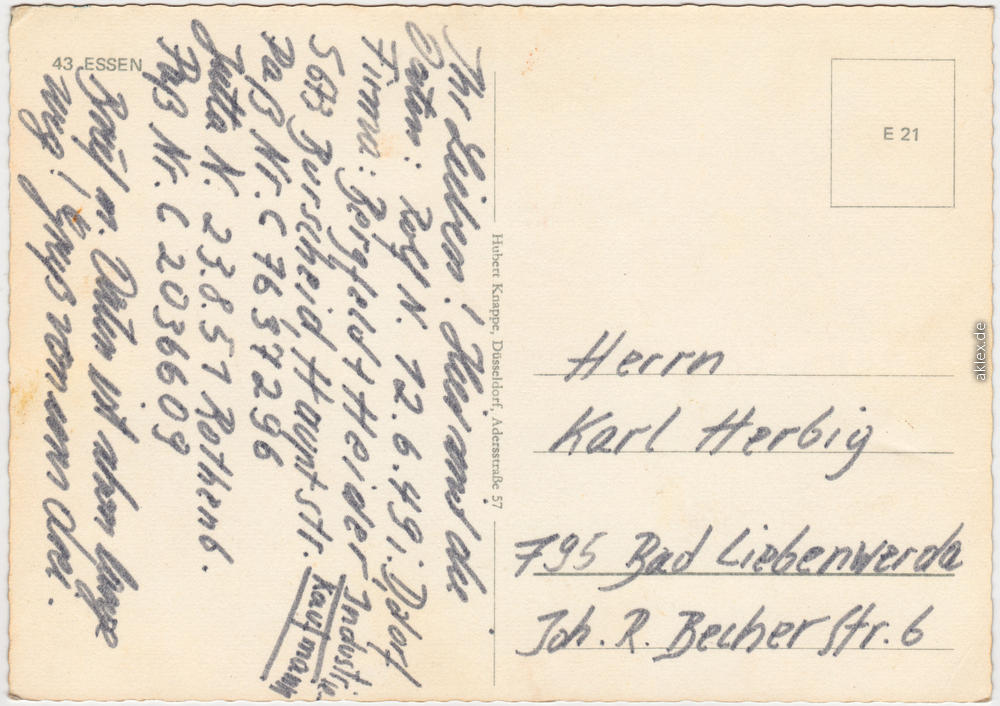 43 ESSEN
Ihr Lieben! Hier sind die
Daten: Rolf N. 12.6.49, Ddorf
Firma: Bergfeld + Heider Industrie
Kaufmann
5673 Burscheid, Hauptstr.
Paß Nr. C 7637296
Jutta N. 23.8.57 Rothenb.
Paß Nr. C 2036609
Brief m. Daten ist schon lange
weg! Gruß von uns drei.
Hubert Knappe, Düsseldorf, Adersstraße 57
E 21
Herrn
Karl Herbig
795 Bad Liebenwerda
Joh. R. Becher Str. 6
aklex.de